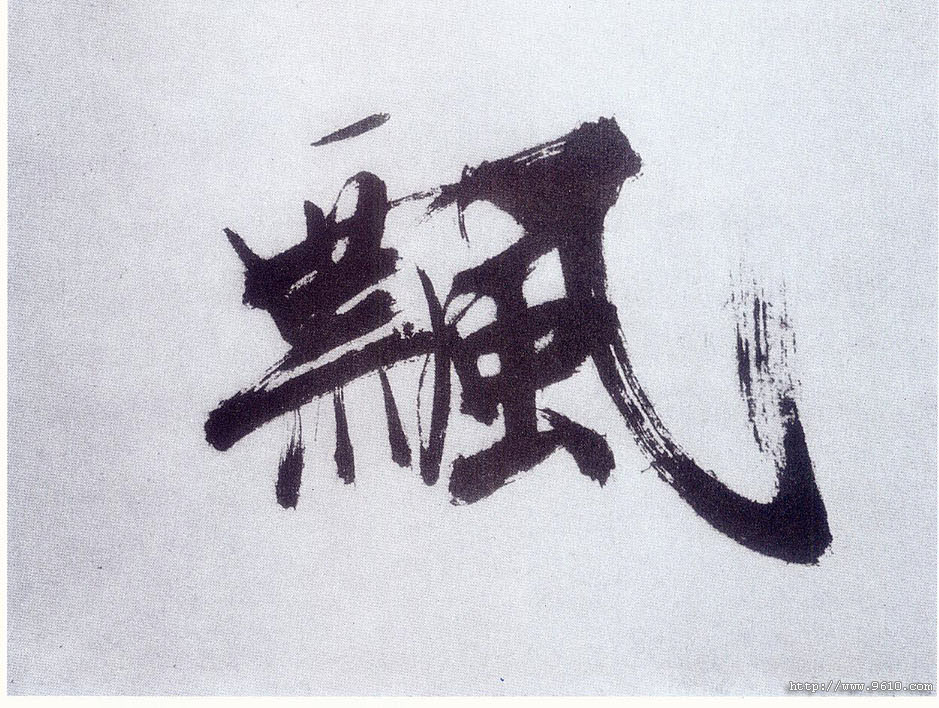 飄
http://www.9610.com